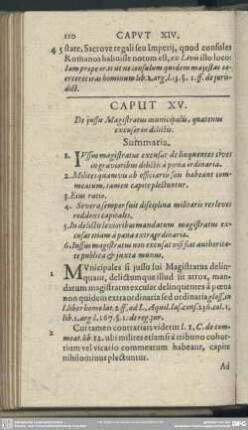 110 CAPVT XIV.
45 state, Sacrove regali seu Imperij, quod consules
Romanos habuisse notum est, ex Livii illo locus
Iam prope erat ut ne consulum quidem majestas co-
erceret iras hominum lib. 2. arg. l. 3. §. 1. ff. de juris-
dict.
CAPUT XV.
De jussu Magistratus municipalis, quatenus
excuset in delictis.
Summaria.
1. Iussus magistratus excusat delinquentes cives
in gravioribus delictis à pœna ordinaria.
2. Milites quamvis ab officiario suo habeant com-
meatum, tamen capite plectuntur.
3. Eius ratio.
4. Severa semper fuit disciplina militaris vel leves
reddens capitales.
5. In delictis levioribus mandatum magistratus ex-
cusat etiam à pœna extraordinaria.
6. Iussus magistratus non excusat nisi sit authorita-
te publica & juxta munus.
1 MVnicipales si jussu sui Magistratus delin-
quant, delictumque illud sit atrox, man-
datum magistratus excusat delinquentes à pœna
non quidem extraordinaria sed ordinaria gloss. in
l. liber homo lat. 2. ff. ad L. Aquil. Ias. cons. 236. col. 1.
lib. 2. arg. l. 167. §. 1. de reg. jur.
2 Cui tamen contrariari videtur l. 1. C. de com-
meat. lib. 12. ubi milites etiamsi à tribuno cohor-
tium vel vicario commeatum habeant, capite
nihilominus plectuntur.
Ad